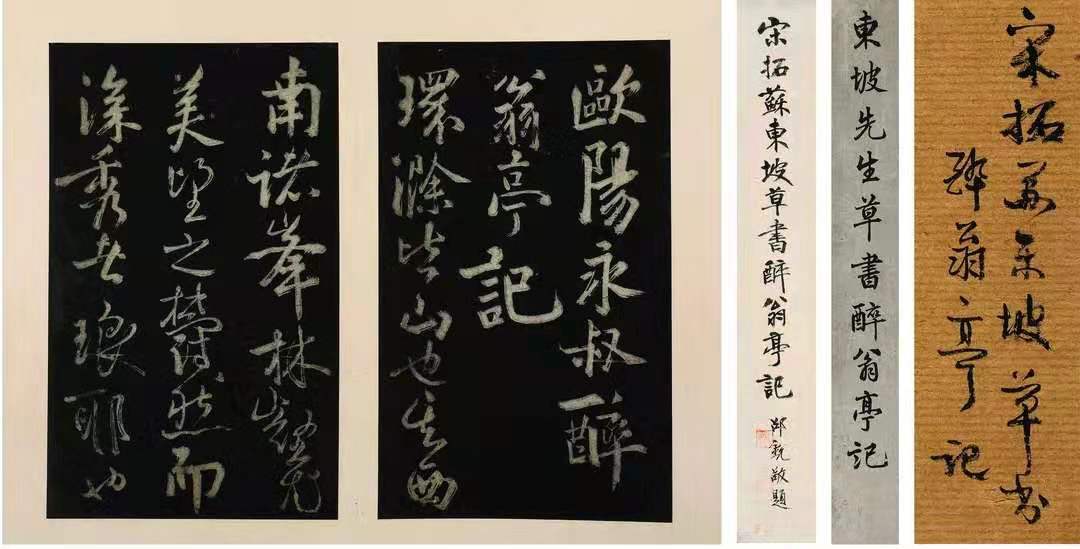 宋拓蘇東坡草書
醉翁亭記
東坡先生草書醉翁亭記
宋拓蘇東坡草書醉翁亭記
邵銳敬題
歐陽永叔醉
翁亭記
環滁皆山也其西
南諸峯林壑尤
美望之蔚然而
深秀者琅耶也